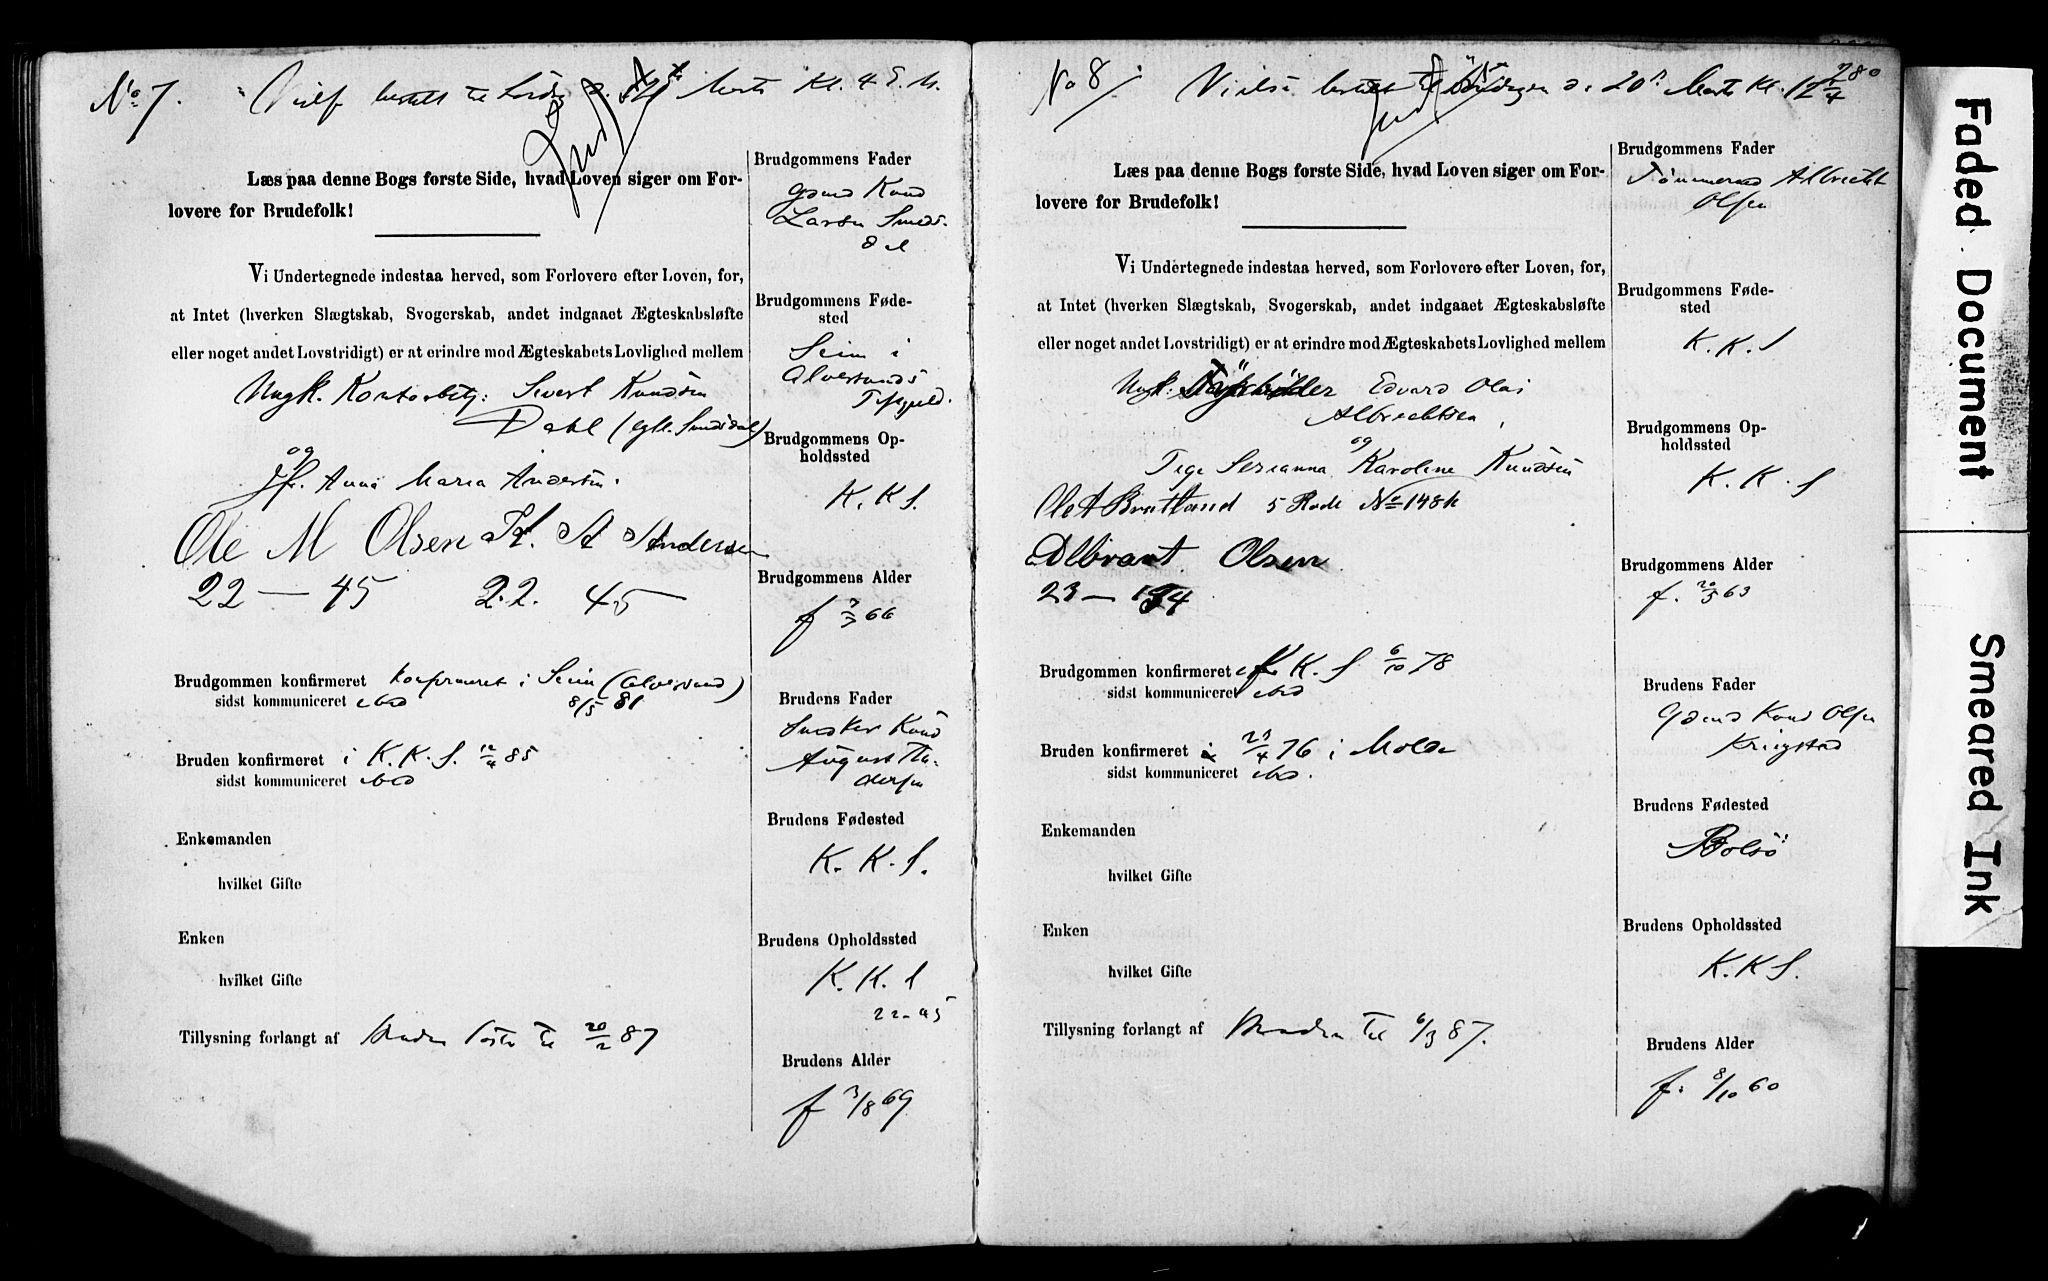 No 7. bestilt til Marts Kl. 4 E. M.
Læs paa denne Bogs første Side, hvad Loven siger om For-
lovere for Brudefolk!
Vi Undertegnede indestaa herved, som Forlovere efter Loven, for,
at Intet (hverken Slægtskab, Svogerskab, andet indgaaet Ægteskabsløfte
eller noget andet Lovstridigt) er at erindre mod Ægteskabets Lovlighed mellem
Ungk. Kontorbetj. Sivert Knudsen
Dahl
og
Anna Maria Andersen.
Ole M Olsen A Andersen
22 — 45 22. 45
Brudgommen konfirmeret konfirmeret i Seim (Alversund)
sidst kommuniceret ibid 8/5 81
Bruden konfirmeret i K. K. S. 12/4 85
sidst kommuniceret ibid
Enkemanden
hvilket Gifte
Enken
hvilket Gifte
Tillysning forlangt af til 20/2 87
Brudgommens Fader
Gmd Knud
Larsen Smeds-
dal
Brudgommens Føde-
sted
Seim i
Alversunds
Brudgommens Op-
holdssted
K. K. S.
Brudgommens Alder
f 66
Brudens Fader
August An-
dersen
Brudens Fødested
K. K. S.
Brudens Opholdssted
K. K. S
22-45
Brudens Alder
f 3/8 69
No 8 bestilt 20 Marts Kl. 12
280
Læs paa denne Bogs første Side, hvad Loven siger om For-
lovere for Brudefolk!
Vi Undertegnede indestaa herved, som Forlovere efter Loven, for,
at Intet (hverken Slægtskab, Svogerskab, andet indgaaet Ægteskabsløfte
eller noget andet Lovstridigt) er at erindre mod Ægteskabets Lovlighed mellem
Ungk. Edvard Olai
Albrechtsen
og
Pige Serianna Karoline Knudsen
Ole A Brattland 5 Rode No 148 k
Albrart Olsen
23 —
Brudgommen konfirmeret K. K. S 6/10 78
sidst kommuniceret ibid
Bruden konfirmeret 23/4 76 i Molde
sidst kommuniceret ibid.
Enkemanden
hvilket Gifte
Enken
hvilket Gifte
Tillysning forlangt af til 6/3 87.
Brudgommens Fader
Tømmermd Albrecht
Olsen
Brudgommens Føde-
sted
K. K. S
Brudgommens Op-
holdssted
K. K. S
Brudgommens Alder
f. 63
Brudens Fader
Gdmd Knud Olsen
Kringstad
Brudens Fødested
Bolsö
Brudens Opholdssted
K. K S.
Brudens Alder
f. 8/10 60
Faded Document
Smeared Ink